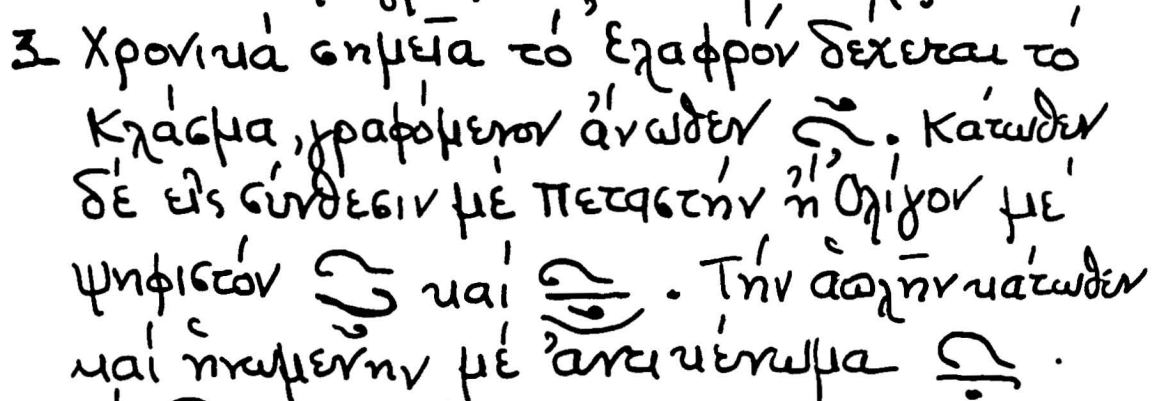 3 Χρονικά σημεῖα τό Ἐλαφρόν δέχεται τό
Κλάσμα, γραφόμενον ἄνωθεν . Κάτωθεν
δέ εἰς σύνθεσιν μέ Πεταστήν ἤ Ὀλίγον μέ
ψηφιστόν καί . Τήν ἁπλῆν κάτωθεν
καί ἡνωμένην μέ ἀντικένωμα .